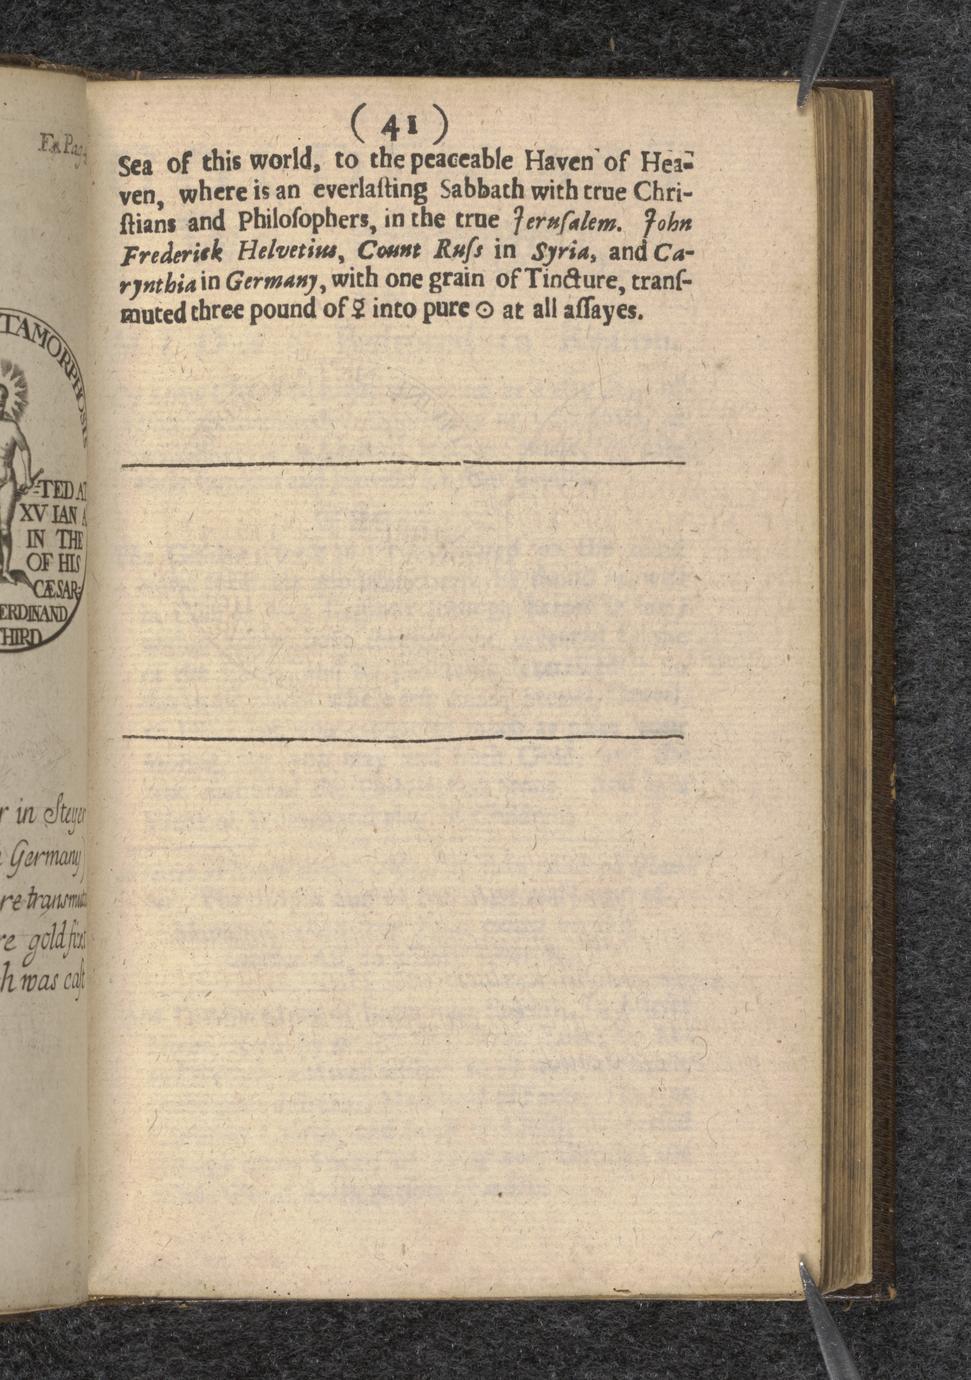 (41)
Sea of this world, to the peaceable Haven of Hea-
ven, where is an everlaſting Sabbath with true Chri-
ſtians and Philoſophers, in the true Jeruſalem. John
Frederick Helvetius, Count Ruſs in Syria, and Ca-
rynthia in Germany, with one grain of Tincture, tranſ-
muted three pound of ☿ into pure ☉ at all aſſayes.
TAMORPHOSIS
TED AT
XV IAN A
IN THE
OF HIS
CÆSAR-
ERDINAND
THIRD
r in Steyer
Germany
re transmut
re gold first
h was caſt